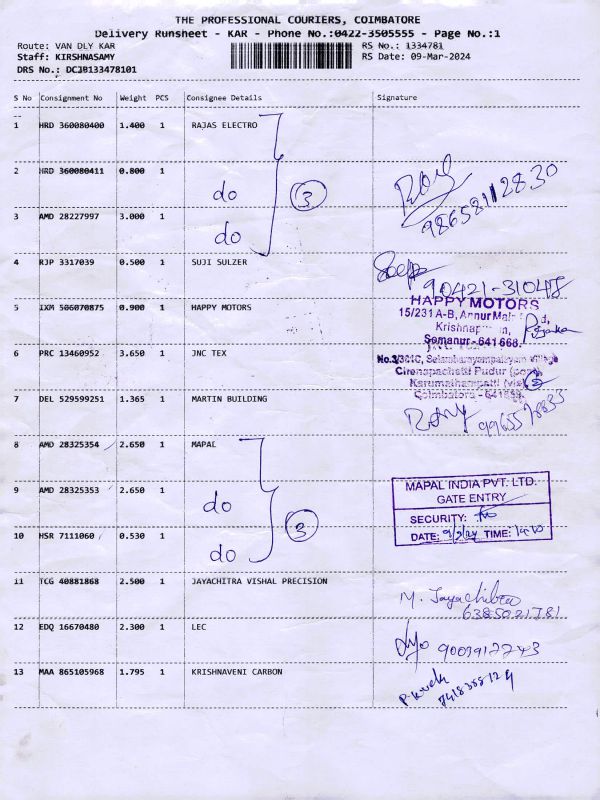 THE PROFESSIONAL COURIERS, COIMBATORE
Delivery Runsheet - KAR - Phone No.:0422-3505555 - Page No.:1
Route: VAN DLY KAR RS No.: 1334781
Staff: KIRSHNASAMY RS Date: 09-Mar-2024
DRS No.: DCJB133478101
S No Consignment No Weight PCS Consignee Details Signature
--
1 HRD 360080400 1.400 1 RAJAS ELECTRO
2 HRD 360080411 0.800 1 do 3
3 AMD 28227997 3.000 1 do
4 RJP 3317039 0.500 1 SUJI SULZER
90421-31048
5 IXM 506070875 0.900 1 HAPPY MOTORS
HAPPY MOTORS
15/231 A-B, Annur Main
Somanur - 641 668.
6 PRC 13460952 3.650 1 JNC TEX
Karumathampatti
Coimbatore - 641659.
7 DEL 529599251 1.365 1 MARTIN BUILDING
8 AMD 28325354 2.650 1 MAPAL
9 AMD 28325353 2.650 1 do 3
10 HSR 7111060 0.530 1 do
MAPAL INDIA PVT. LTD.
GATE ENTRY
SECURITY:
DATE: 9/3/24 TIME:
11 TCG 40881868 2.500 1 JAYACHITRA VISHAL PRECISION
M. Jayachitra
6385021781
12 EDQ 16670480 2.300 1 LEC
13 MAA 865105968 1.795 1 KRISHNAVENI CARBON